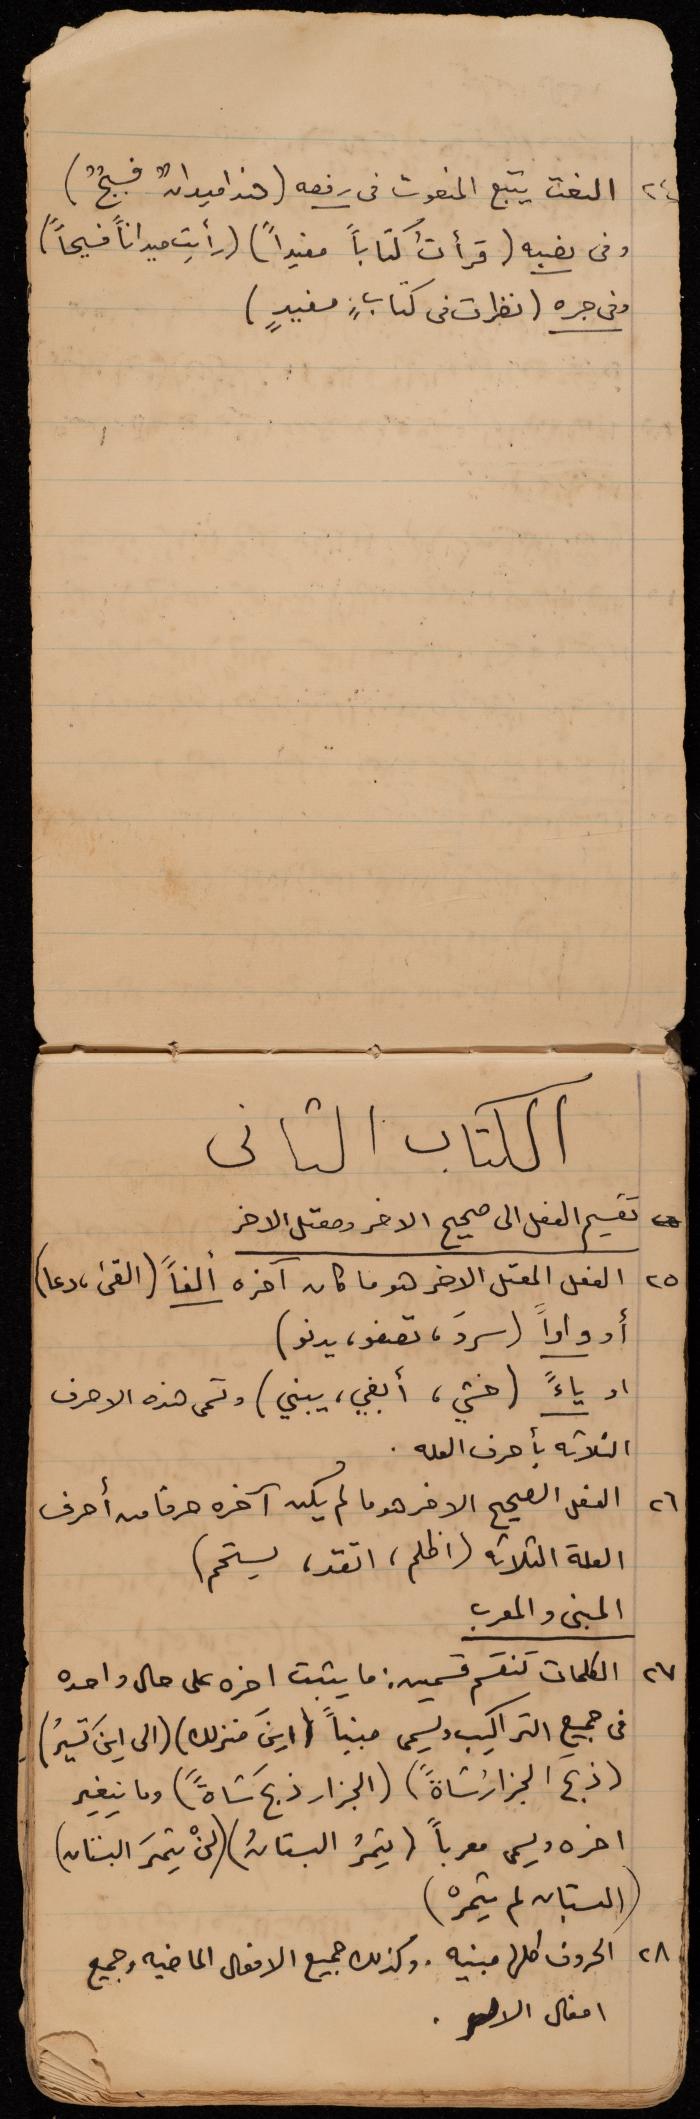 ٢٤ النعت يتبع المنعوت فى رفعه (هذا ميدانٌ فسيحٌ)
وفى نصبه (قرأتُ كتاباً مفيداً) (رأيت ميداناً فسيحاً)
وفى جره (نظرت فى كتابٍ مفيدٍ)
الكتاب الثانى
تقسيم الفعل الى صحيح الاخر ومعتل الاخر
٢٥ الفعل المعتل الاخر هو ما كان آخره ألفاً (القى، دعا)
أو واواً (سروَ، تصفو، يدنو)
او ياءً (خشي، أبغي، يبني) وتسمى هذه الاحرف
الثلاثه بأحرف العله .
٢٦ الفعل الصحيح الاخر هو ما لم يكن آخره حرفا من أحرف
العلة الثلاثه (اظلم، اتقد، يستحم)
المبنى والمعرب
٢٧ الكلمات تنقسم قسمين: ما يثبت اخره على حال واحده
فى جميع التراكيب ويسمى مبنياً (اينَ منزلك) (الى اينَ تسيرُ)
(ذبحَ الجزارُ شاةً) (الجزار ذبحَ شاةً) وما يتغير
اخره ويسمى معرباً (يثمرُ البستانُ) (لنْ يثمرَ البستان)
(البستان لم يثمرْ)
٢٨ الحروف كلها مبنيه . وكذلك جميع الافعال الماضيه وجميع
افعال الامر .